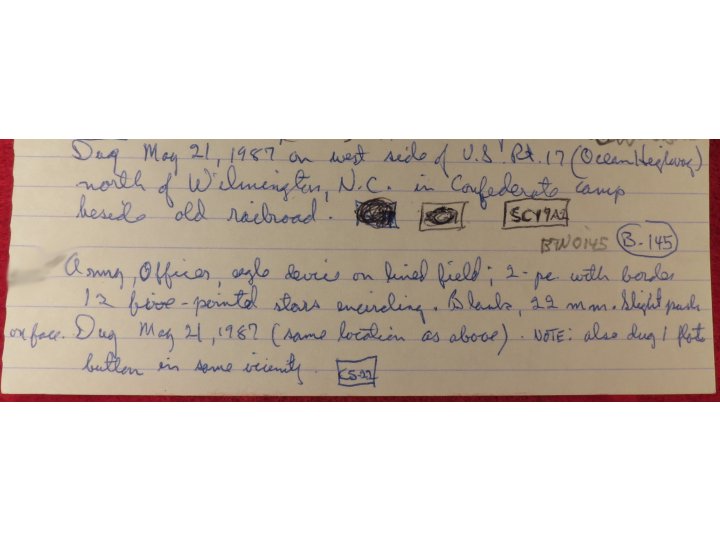 Dug May 21, 1987 on west side of U.S. Rt. 17 (Ocean Heghway)
north of Wilmington, N.C. in Confederate camp
beside old railroad. SC17A2
BW0145 B-145
Army, Officer, eagle device on lined field; 2-pc with border
12 five-pointed stars encircling. Blank, 22 mm. Slight push
on face. Dug May 21, 1987 (same location as above). NOTE: also dug 1 flat
button in same vicinity. CS-22